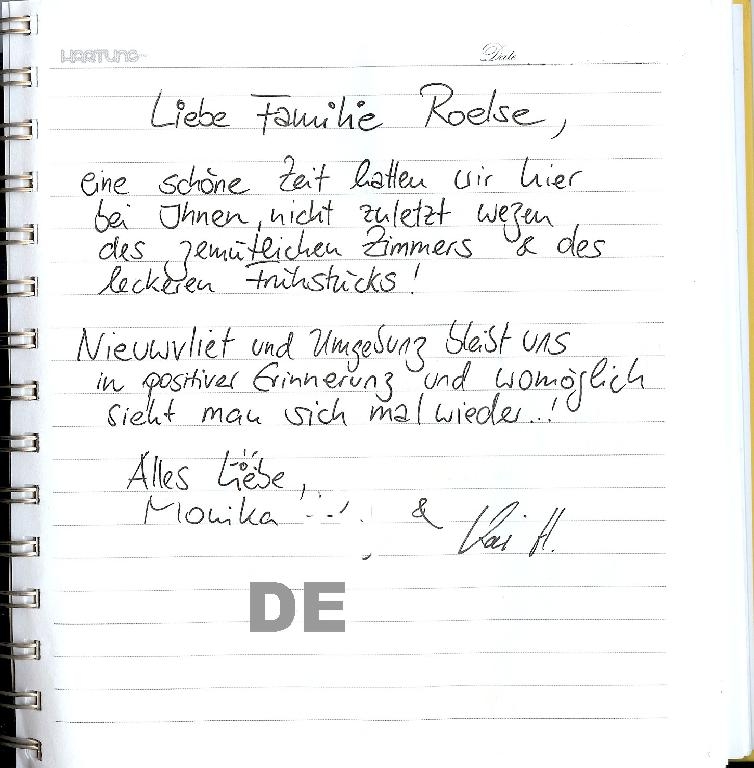 HARTUNG
Date
Liebe Familie Roelse,
eine schöne Zeit hatten wir hier
bei Ihnen, nicht zuletzt wegen
des gemütlichen Zimmers & des
leckeren Frühstücks!
Nieuwvliet und Umgebung bleibt uns
in positiver Erinnerung und womöglich
sieht man sich mal wieder..!
Alles Liebe,
Monika & Kai H.
DE